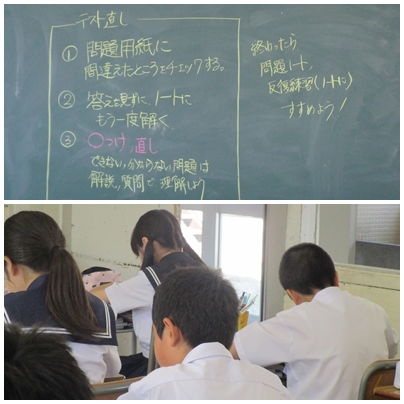 テスト直し
① 問題用紙に
間違えたところをチェックする。
② 答えを見ずに、ノートに
もう一度解く
③ ○つけ、直し
できない、分からない問題は
解説、質問で理解しよう
終わったら
問題ノート、
反復練習(ノートに)
すすめよう!